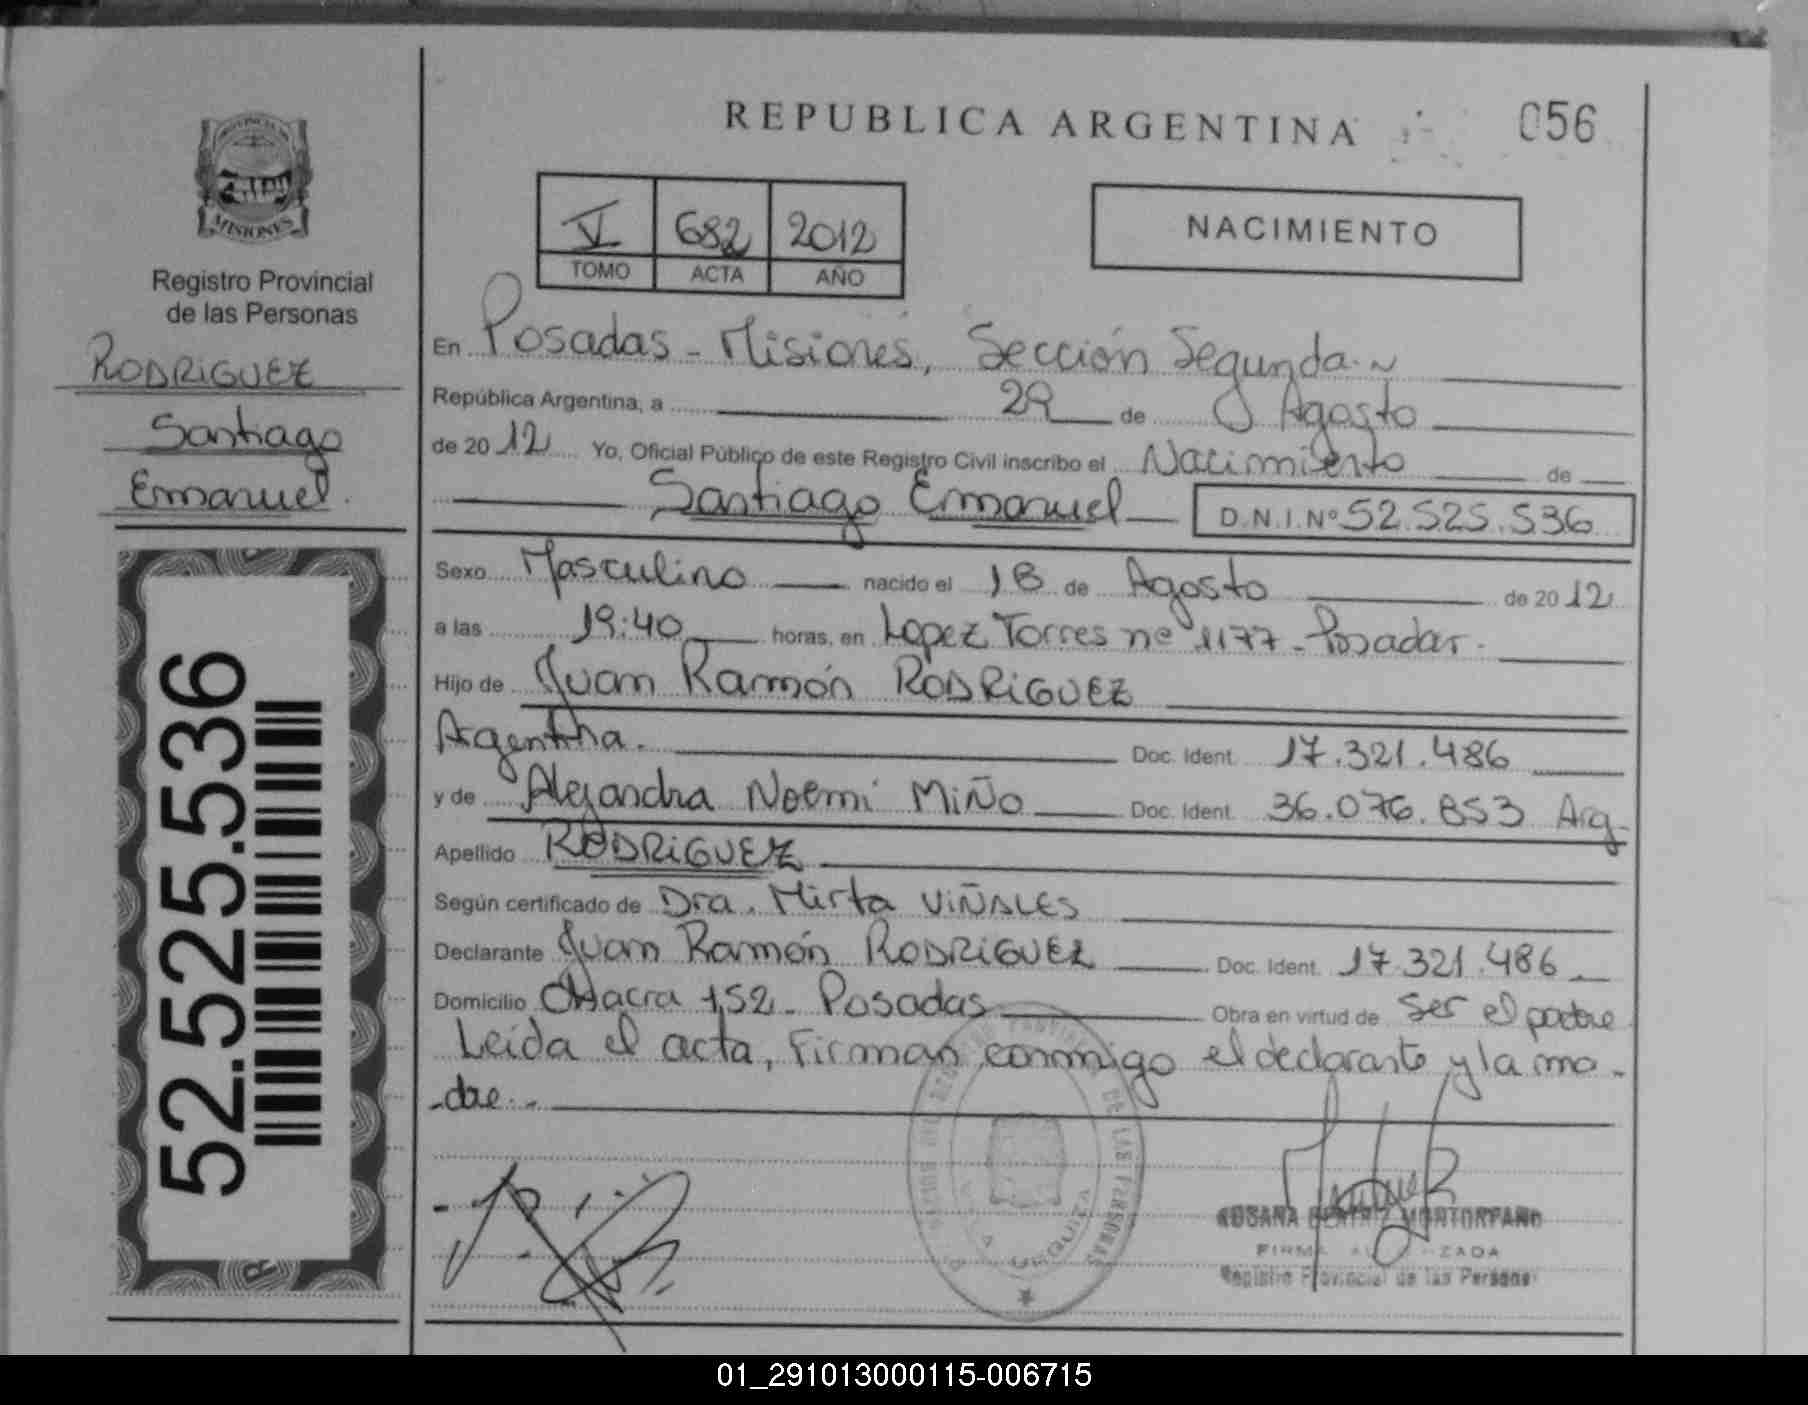 REPUBLICA ARGENTINA
056
PROVINCIA DE
MISIONES
Registro Provincial
de las Personas
RODRIGUEZ
Santiago
Emanuel.
52.525.536
V 682 2012
TOMO ACTA AÑO
NACIMIENTO
En Posadas - Misiones, Sección Segunda.~
República Argentina, a 29 de Agosto
de 2012 Yo, Oficial Público de este Registro Civil inscribo el Nacimiento de
Santiago Emanuel D.N.I.Nº 52.525.536
Sexo Masculino nacido el 18 de Agosto de 2012
a las 19:40 horas, en Lopez Torres nº 1177 - Posadas.
Hijo de Juan Ramón RODRIGUEZ
Argentina. Doc. Ident. 17.321.486
y de Alejandra Noemi MIÑO Doc. Ident. 36.076.853 Arg.
Apellido RODRIGUEZ
Según certificado de Dra. Mirta VIÑALES
Declarante Juan Ramón RODRIGUEZ Doc. Ident. 17.321.486
Domicilio Chacra 152 - Posadas Obra en virtud de ser el padre
Leída el acta, Firman conmigo el declarante y la ma-
-dre.-
DE LAS PERSONAS
ROSANA BEATRIZ
FIRMA AUTORIZADA
Registro Provincial de las Personas
01_291013000115-006715